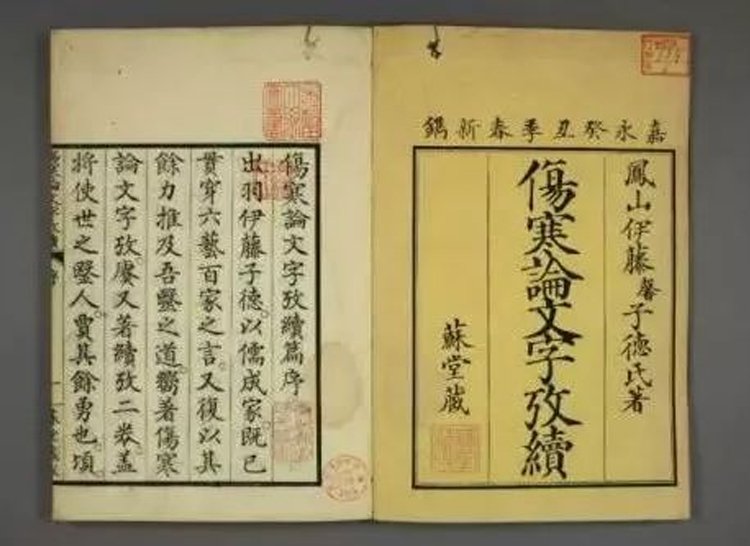 嘉永癸丑季春新鐫
鳳山伊藤馨子德氏著
傷寒論文字攷續
蘇堂藏
傷寒論文字攷續篇序
出羽伊藤子德。以儒成家。既已
貫穿六藝百家之言。又復以其
餘力推及吾毉之道。嚮著傷寒
論文字攷。屢又著續攷二卷。蓋
將使世之毉人賈其餘勇也。頃